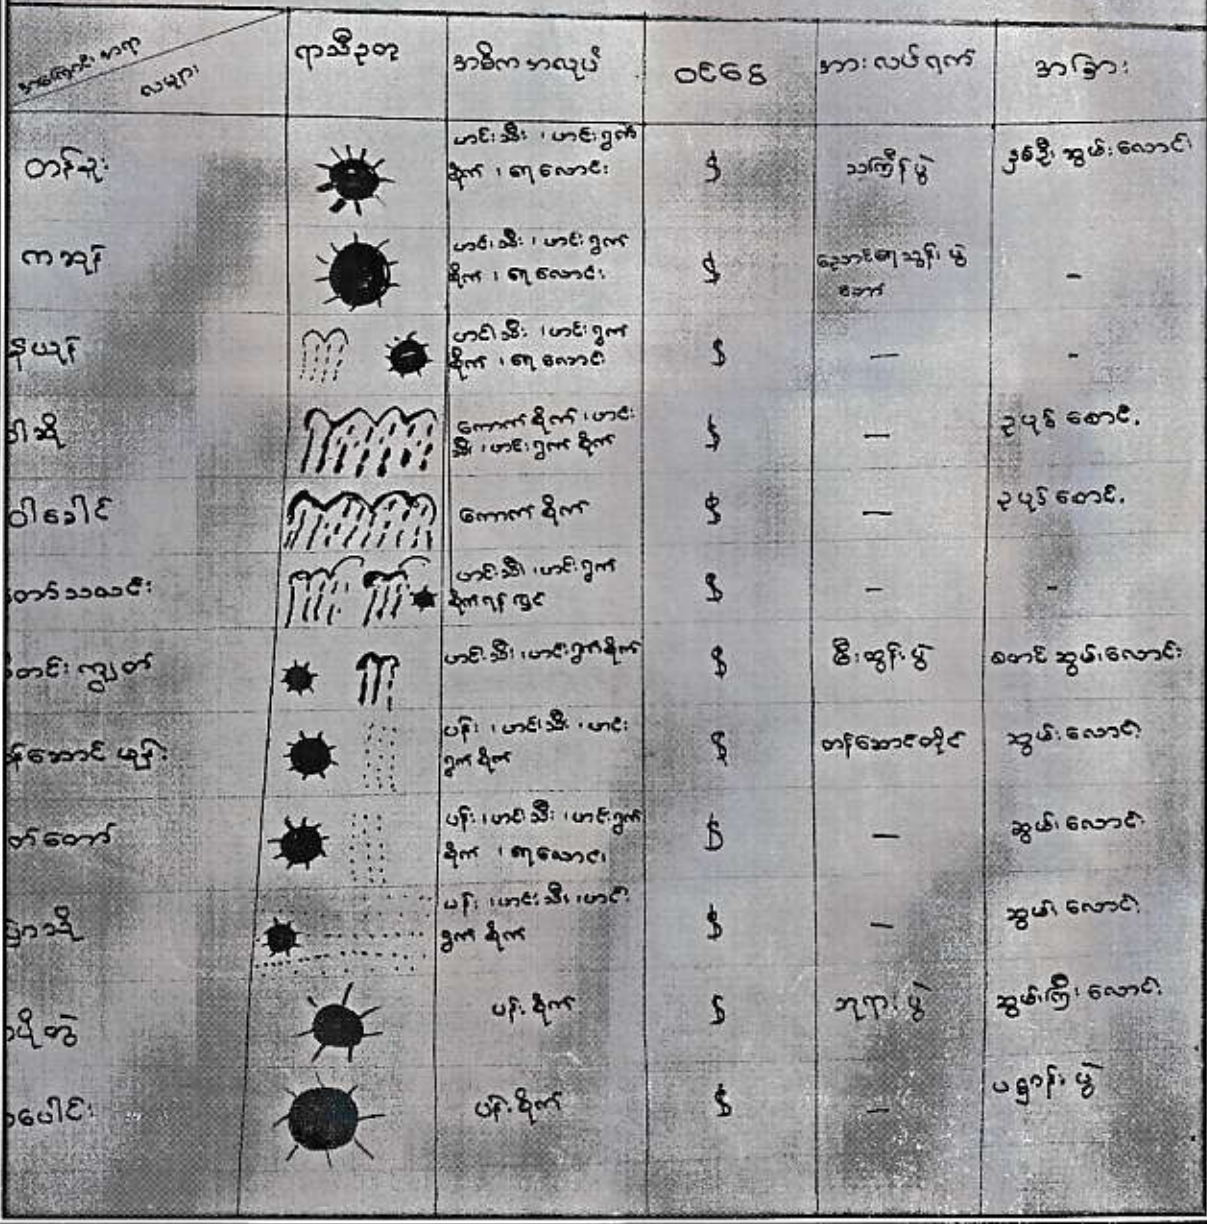 အကြောင်းအရာ
လများ
ရာသီဥတု
အဓိကအလုပ်
ဝင်ငွေ
အားလပ်ရက်
အခြား
တန်ခူး
ဟင်းသီး၊ ဟင်းရွက်
စိုက်၊ ရေလောင်း
$
သင်္ကြန်ပွဲ
နှစ်ဦးဆွမ်းလောင်း
ကဆုန်
ဟင်းသီး၊ ဟင်းရွက်
စိုက်၊ ရေလောင်း
$
ညောင်ရေသွန်းပွဲ
တော်
-
နယုန်
ဟင်းသီး၊ ဟင်းရွက်
စိုက်၊ ရေလောင်း
$
-
-
ဝါဆို
ကောက်စိုက်၊ ဟင်း
သီး၊ ဟင်းရွက်စိုက်
$
-
ဥပုဒ်စောင့်
ဝါခေါင်
ကောက်စိုက်
$
-
ဥပုဒ်စောင့်
တော်သလင်း
ဟင်းသီး၊ ဟင်းရွက်
စိုက်
$
-
-
သီတင်းကျွတ်
ဟင်းသီး၊ ဟင်းရွက်စိုက်
$
မီးထွန်းပွဲ
ဆွမ်းလောင်း
န်ဆောင်မုန်း
ပန်း၊ ဟင်းသီး၊ ဟင်း
ရွက်စိုက်
$
တန်ဆောင်တိုင်
ဆွမ်းလောင်း
တ်တော်
ပန်း၊ ဟင်းသီး၊ ဟင်းရွက်
စိုက်၊ ရေလောင်း
$
-
ဆွမ်းလောင်း
ပြာသို
ပန်း၊ ဟင်းသီး၊ ဟင်း
ရွက်စိုက်
$
-
ဆွမ်းလောင်း
ပို့တွဲ
ပန်းစိုက်
$
ဘုရားပွဲ
ဆွမ်းကြီးလောင်း
ပေါင်း
ပန်းစိုက်
$
-
ပဋ္ဌာန်းပွဲ